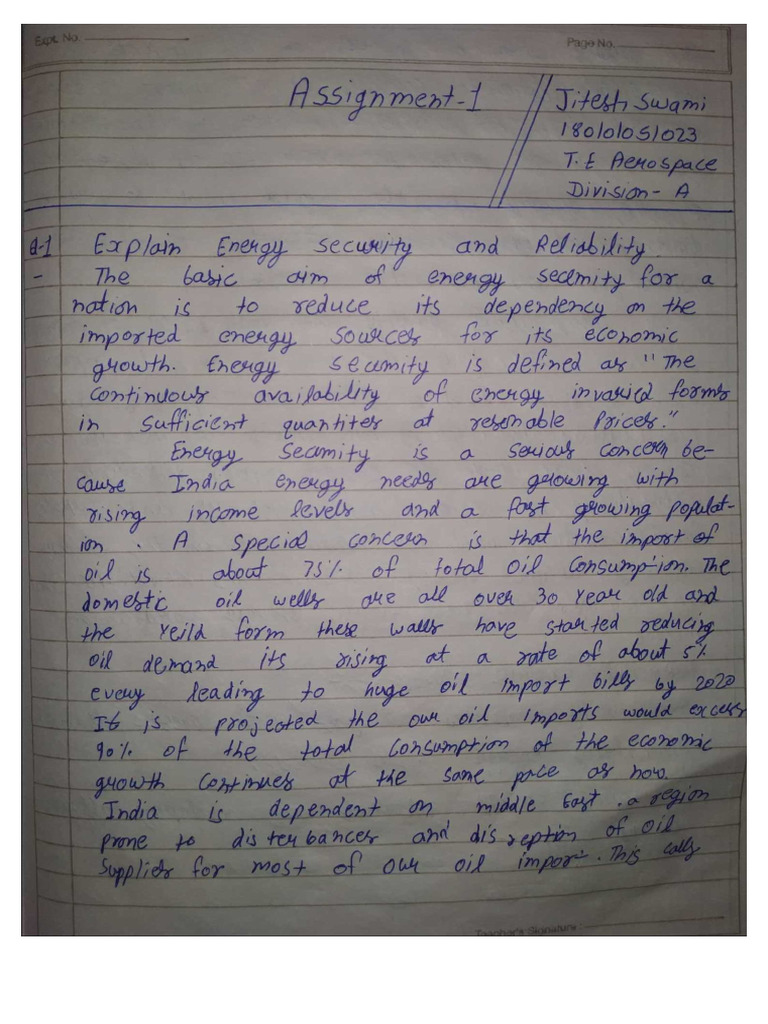 Expt. No.
Page No.
Assignment-1
Jitesh Swami
180101051023
T.E Aerospace
Division - A
Q-1 Explain Energy security and Reliability
- The basic aim of energy security for a
nation is to reduce its dependency on the
imported energy sources for its economic
growth. Energy security is defined as "The
continuous availability of energy invaried forms
in sufficient quantites at resonable Prices."
Energy Security is a serious concern be-
cause India energy needs are growing with
rising income levels and a fast growing populat-
ion. A special concern is that the import of
oil is about 75% of total oil consumption. The
domestic oil wells are all over 30 year old and
the Yeild form these walls have started reducing
oil demand its rising at a rate of about 5%
every leading to huge oil import bills by 2020
It is projected the our oil imports would excess
90% of the total consumption of the economic
growth continues at the same pace as now.
India is dependent on middle East. a region
prone to disterbances and disreption of oil
Supplies for most of our oil impor. This calls
Teacher's Signature :